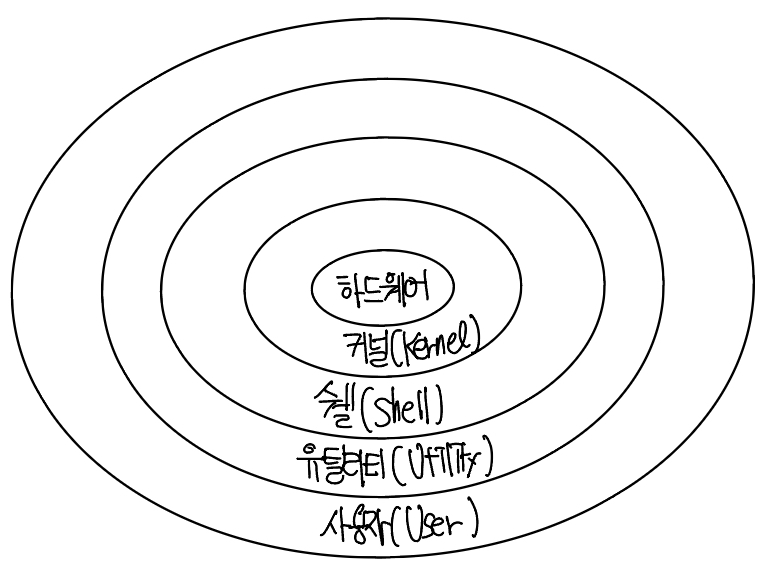 하드웨어
커널(Kernel)
쉘(Shell)
유틸리티(Utility)
사용자(User)